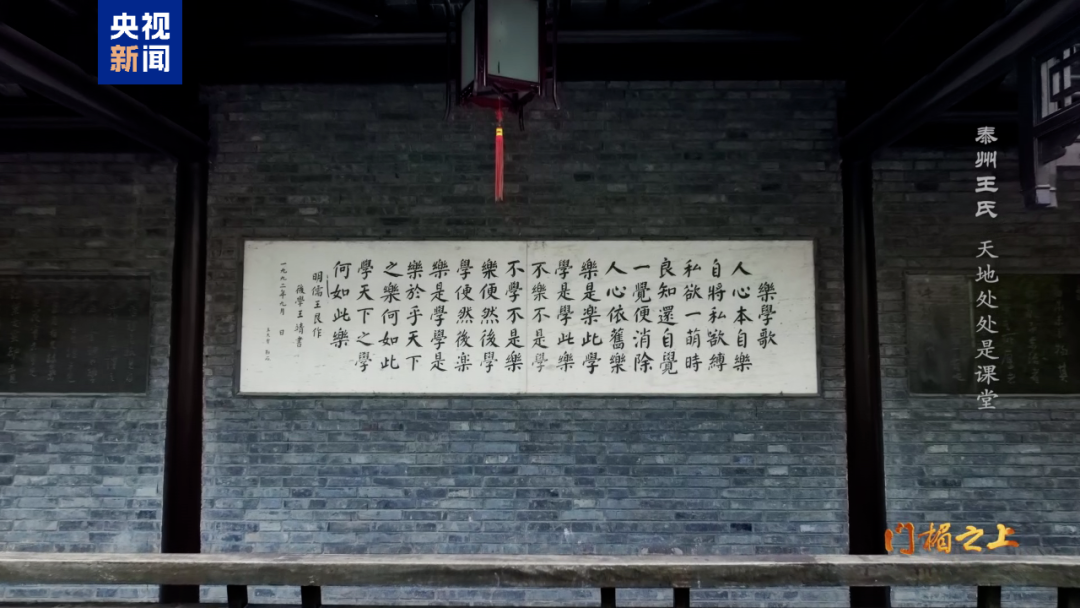 央视
新闻
泰州王氏 天地处处是课堂
樂學歌
人心本自樂
自將私欲縛
私欲一萌時
良知還自覺
一覺便消除
人心依舊樂
樂是樂此學
學是學此樂
不樂不是學
不學不是樂
樂便然後學
學便然後楽
樂是學學是
樂於乎天下
之樂何如此
學天下之學
何如此樂
明儒王艮作
後學王靖書
一九九二年九月 日
门楣之上